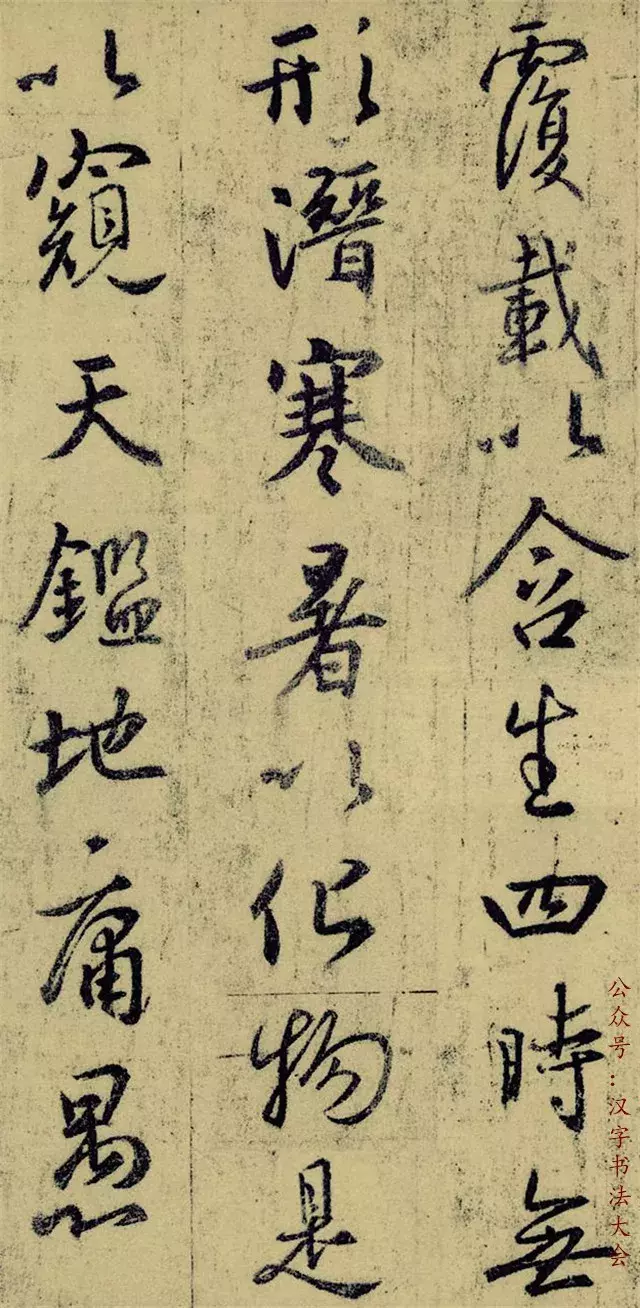 覆載以含生四時無
形潛寒暑以化物是
以窺天鑑地庸愚
公众号：汉字书法大会